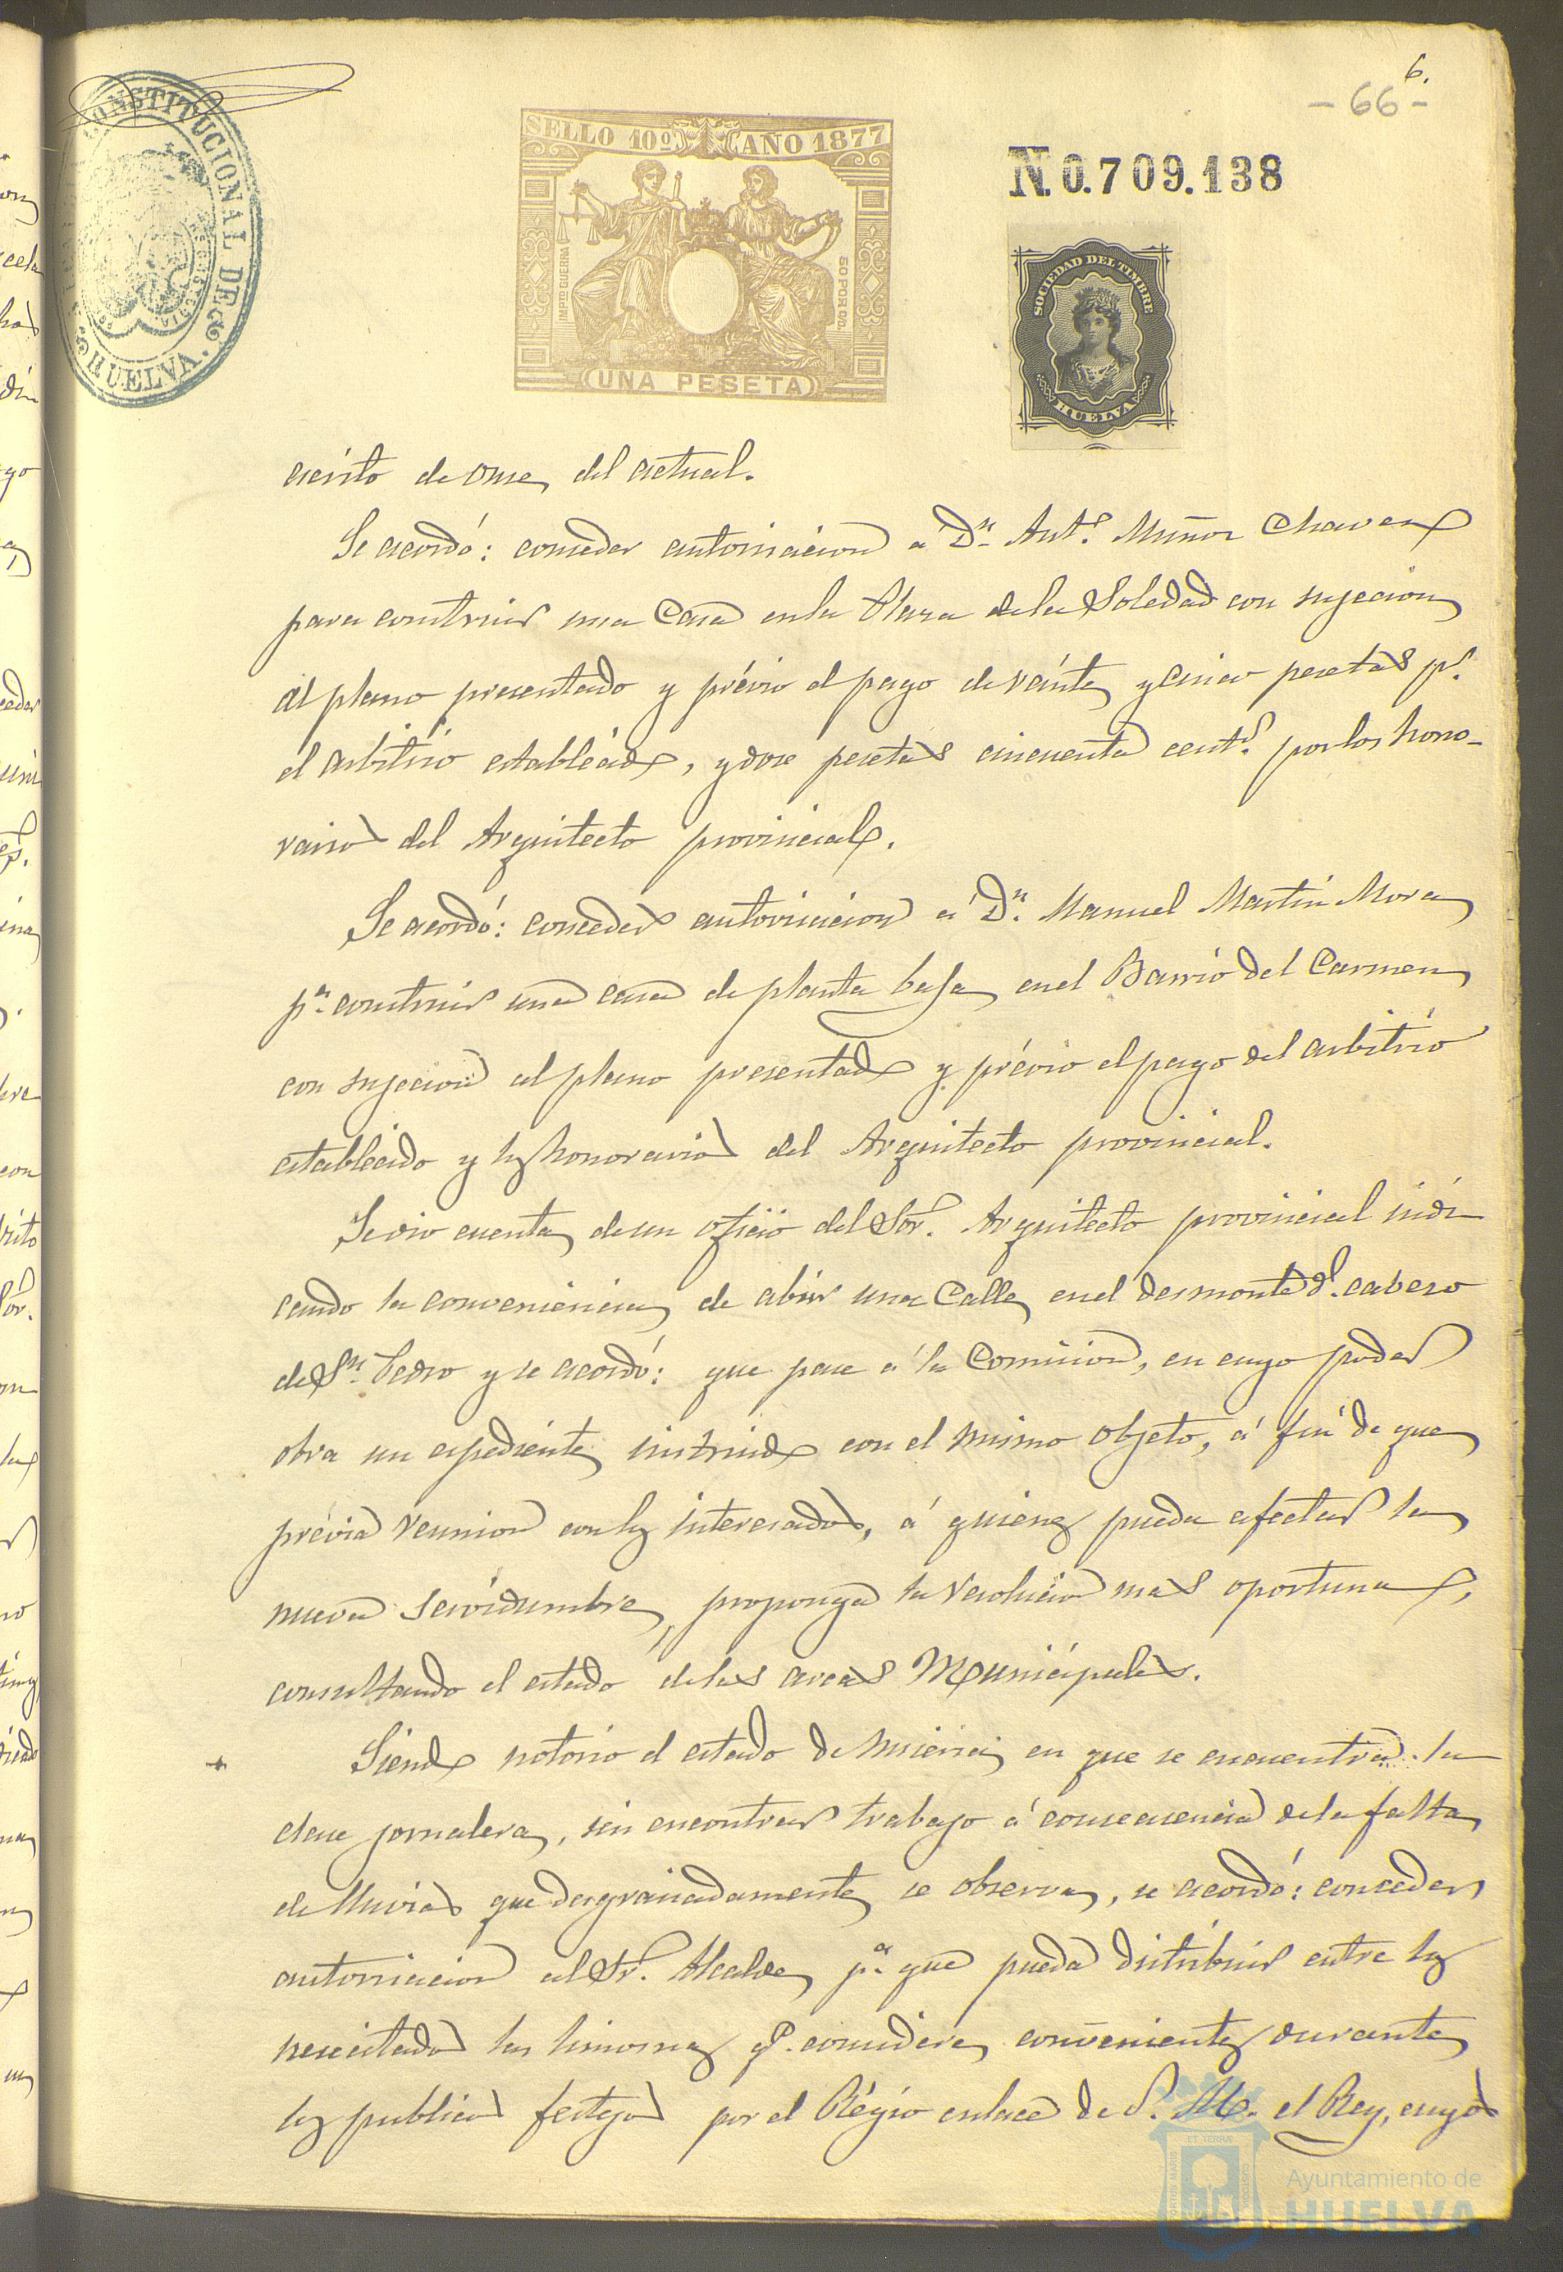 6.
- 66 -
CONSTITUCIONAL DE
HUELVA
SELLO 10º AÑO 1877
IMPTO GUERRA
50 POR C/O
UNA PESETA
N. 0.709.138
SOCIEDAD DEL TIMBRE
HUELVA
crito de once del actual.
Se acordó: conceder autorizacion a Dn. Antº. Muñoz Chavez
para construir una Casa en la Plaza de la Soledad con sujecion
al plano presentado y prévio el pago de veinte y cinco pesetas pr.
el arbitrio establecido, y doce pesetas cincuenta cents. por los hono-
rarios del Arquitecto provincial.
Se acordó: conceder autorizacion á Dn. Manuel Martin Mora
pa. construir una casa de planta baja en el Barrio del Carmen
con sujecion al plano presentado y prévio el pago del arbitrio
establecido y los honorarios del Arquitecto provincial.
Se dio cuenta de un oficio del Sor. Arquitecto provincial indi
cando la conveniencia de abrir una Calle en el desmonte dl. cabezo
de Sn. Pedro y se acordó: que pase á la Comision, en cuyo poder
obra un espediente instruido con el mismo objeto, á fin de que
prévia reunion con los interesados, á quienes pueda afectar la
nueva servidumbre, proponga la resolucion mas oportuna,
consultando el estado de las arcas Municipales.
+ Siendo notorio el estado de miseria en que se encuentra la
clase jornalera, sin encontrar trabajo á consecuencia de la falta
de lluvias que desgraciadamente se observa, se acordó: conceder
autorizacion al Sr. Alcalde pa. que pueda distribuir entre los
necesitados las limosnas qe. considere convenientes durante
los publicos festejos por el Régio enlace de S. M. el Rey, cuyos
Ayuntamiento de
HUELVA